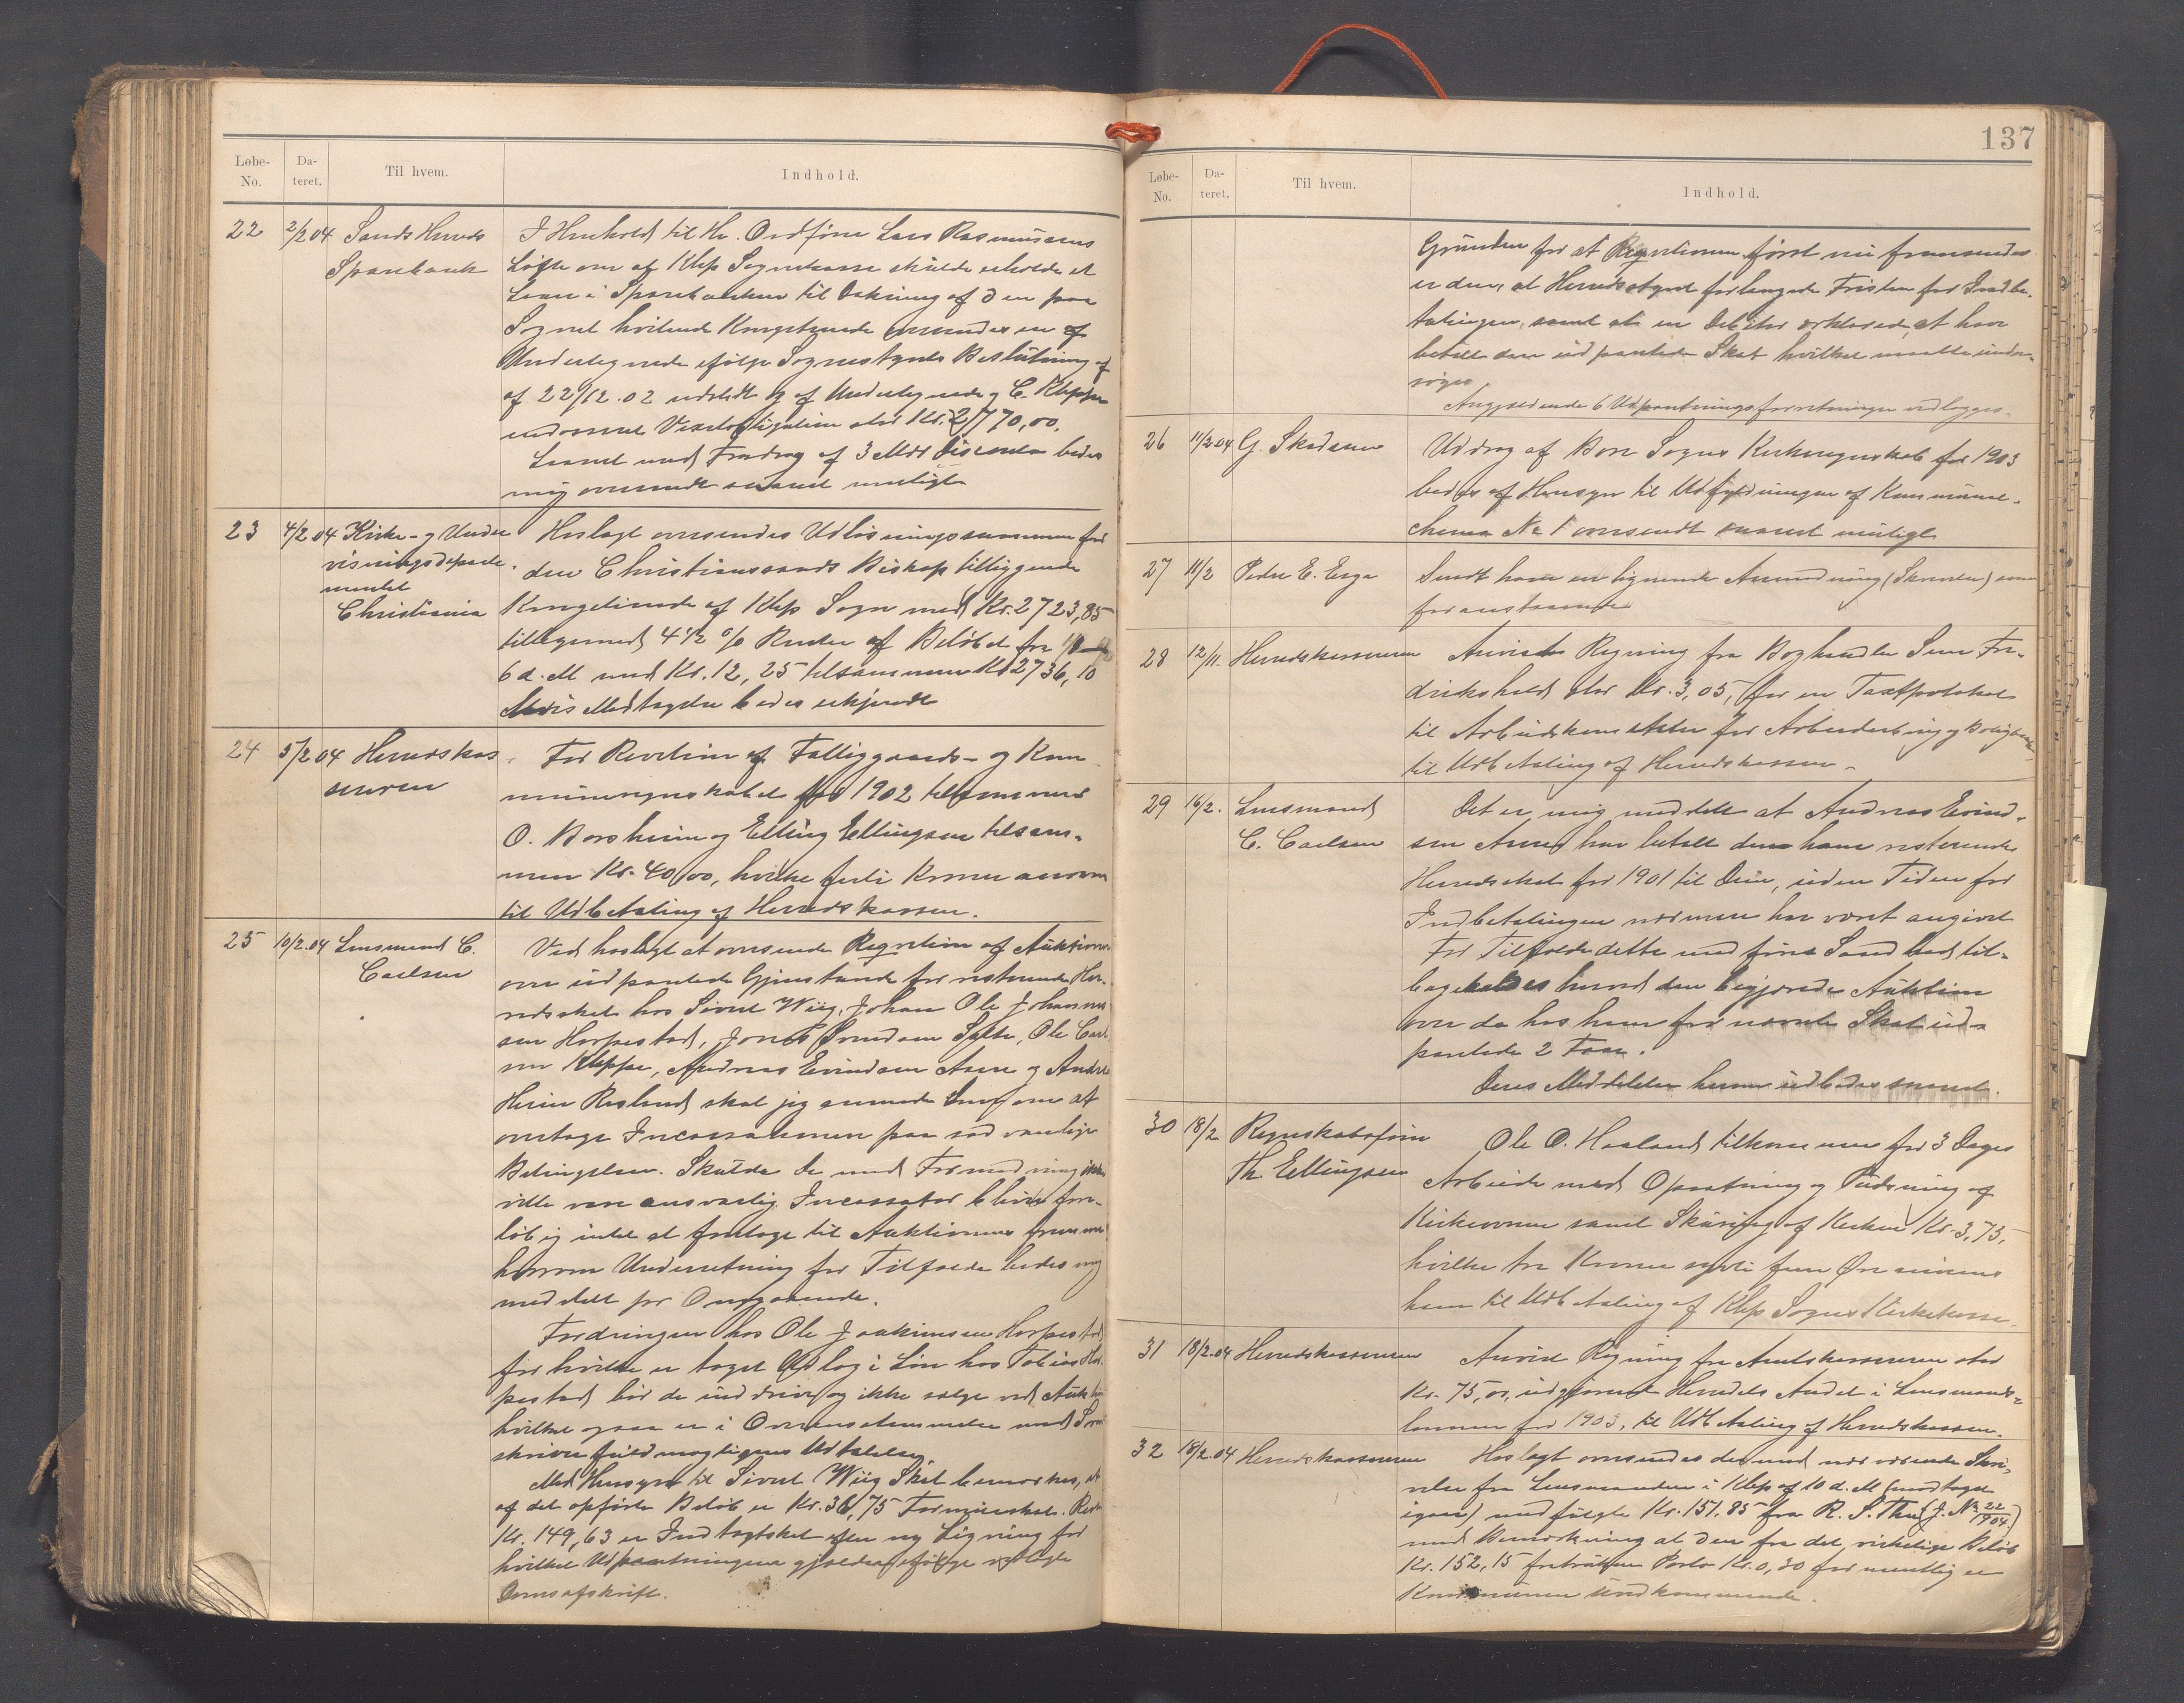 Løbe-No. Dateret. Til hvem. Indhold.
22 2/2 04 Sands Herreds Sparebank
I Henhold til Hr. Ordfører Lars Rasmussens
Løfte om at Klep Sognekasse skulde erholde et
Laan i Sparebanken til Dækning af den paa
Sognet hvilende Kongetiende oversendes en af
Undertegnede ifølge Sognestyrets Beslutning af
af 22/12.02 udstedt og af Undertegnede og C. Kleppe
endosseret Vexelobligation stor Kr. 2770,00.
Laanet med Fradrag af 3 Mdr Disconto bedes
mig oversendt snarest muligt
23 4/2 04 Kirke- og Undervisningsdepartementet Christiania
Hoslagt oversendes Udløsningssummen for
den Christianssands Biskop tilliggende
Kongetiende af Klep Sogn med Kr. 2723,85
tilligemed 4 1/2 % Renter af Beløbet fra
6 d. M med Kr. 12,25 tilsammen Kr 2736,10
Modtagelse bedes erkjendt
24 5/2 04 Herredskassereren
For Revision af Fattiggaards- og Kom
muneregnskabet for 1902 tilkommer
O. Borsheim og Elling Ellingsen tilsam-
men Kr. 40,00, hvilke førti Kroner anvises
til Udbetaling af Herredskassen.
25 10/2.04 Lensmand C. Carlsen
Ved hoslagt at oversende Reqvisition af Auktioner
over udpantede Gjenstande for resterende Her-
redsskat hos Sivert Wiig, Johan Ole Johannes
sen Horpestad, Jonas Svendsen Sælte, Ole Carl
sen Kleppe, Andreas Eivindsen Aase og Andre
Heien Roslund skal jeg anmode Dem om at
overtage Incassationen paa sædvanlige
Betingelser. Skulde De mod Formodning ikke
ville være ansvarlig Incassator bliver fore-
løbig intet at foretage til Auktionens fremme
hvorom Underretning for Tilfælde bedes mig
meddelt pr Omgaaende.
Fordringen hos Ole Joakimsen Horpestad
for hvilke er taget Udlæg i Løn hos Tobias Hor-
pestad bør de inddrive og ikke sælge ved Auktion
hvilket ogsaa er i Overensstemmelse med Soren
skriverfuldmægtigens Udtalelse
Med Hensyn til Sivert Wiig Skat bemærkes, at
af det opførte Beløb er Kr. 36,75 Formueskat. Resten
Kr. 149,63 er Indtægtskat efter ny Ligning for
hvilket Udpantningen gjælder ifølge vedlagte
Domsafskrift.
137
Løbe-No. Dateret. Til hvem. Indhold.
Grunden for at Reqvisitionen først nu fremsendes
er den, at Herredsstyret forlængede Fristen for Indbe-
talingen, samt at en Debitor erklærede at have
betalt den udpantede Skat hvilket maatte under-
søges
Angjældende 6 Udpantningsforretninger vedlægges.
26 11/2 04 G. Skadsem
Uddrag af Bore Sogns Kirkeregnskab for 1903
bedes af Hensyn til Udfyldningen af Kommune-
schema No 1 oversendt snarest muligt
27 11/2 Peder E. Erga
Sendt ham en lignende Anmodning (Skrivelse) som
foranstaaende
28 12/11. Herredskassereren
Anvist Regning fra Boghandler Sem Fre-
drikshald stor Kr. 3,05, for en Taxtprotokol
til Arbeidskomiteen for Arbeiderbrug og Boliglaan
til Udbetaling af Herredskassen.
29 16/2. Lensmand C. Carlsen
Det er mig meddelt at Andreas Eivind-
sen Aase har betalt den ham resterende
Herredsskat for 1901 til Dem, uden Tiden for
Indbetalingen nærmere har været angivet
For Tilfælde dette medfører Sandhed til-
bagekaldes herved den begjærede Auktion
over de hos ham for nævnte Skat ud-
pantede 2 Faar.
Deres Meddelelse herom udbedes snarest.
30 18/2 Regnskabsfører Th. Ellingsen
Ole O. Haaland tilkommer for 3 Dages
Arbeide med Opsætning og Pudsning af
Kirkeovnen samt Skuring af Kirken Kr. 3,75,
hvilke tre Kroner sytti fem Øre anvises
ham til Udbetaling af Klep Sogns Kirkekasse.
31 18/2.04 Herredskassereren
Anvist Regning fra Amtskassereren stor
Kr. 75,00, udgjørende Herredets Andel i Lensmands-
lønnen for 1903, til Udbetaling af Herredskassen.
32 18/2.04 Herredskassereren
Hoslagt oversendes den med nærværende Skri-
velse fra Lensmanden i Klep af 10 d. M (modtaget
igaar) medfulgte Kr. 151,85 fra R. S. Thu (J. No 22/1904)
med Bemærkning at den fra det virkelige Beløb
Kr. 152,15 fratrukne Porto Kr. 0,30 formentlig er
Kommunen uvedkommende.